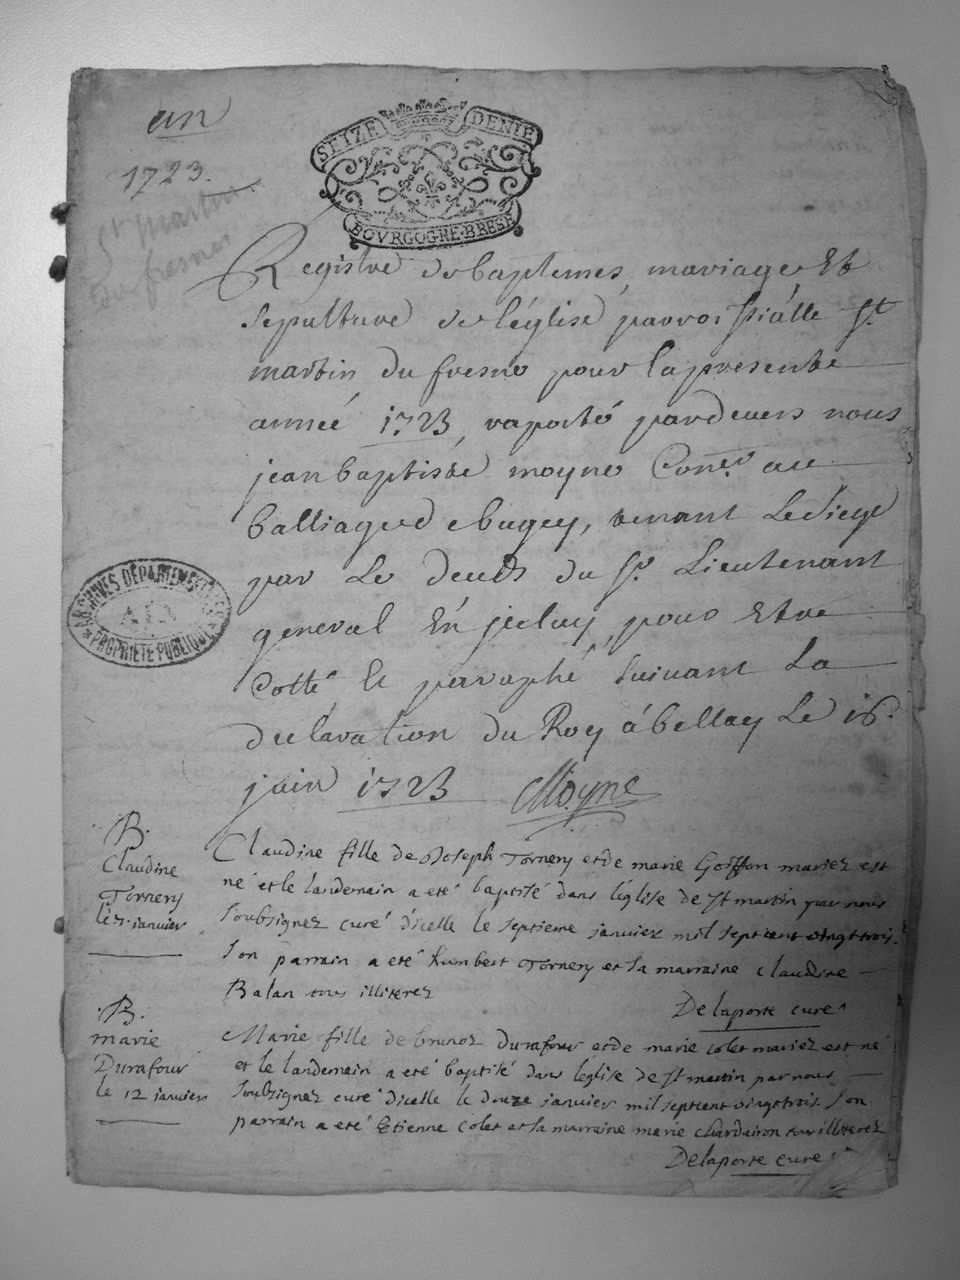 un
1723.
St martin
du fresne
SEIZE DENIE
BOVRGOGNE·BRESE
Registre de baptemes, mariage Et
sepulture de l'église parroissialle St
martin du fresne pour la presente
année 1723, raporté pardevers nous
jean baptiste moyne Coner au
balliage de bugey, tenant le siege
par le deceds du Sr Lieutenant
general En jceluy, pour Etre
Cotté et paraphé suivant La
declaration du Roy à bellay Le 16.
juin 1723 Moyne
ARCHIVES DÉPARTEMENTALES
AIN
PROPRIÉTÉ PUBLIQUE
B.
Claudine
Tornery
le 7 janvier
Claudine fille de Joseph Tornery et de marie Goiffon mariez est
né et le landemain a eté baptisé dans l'église de St martin par nous
soubsignez curé d'icelle le septieme janvier mil septcent vingttrois.
son parrain a eté humbert Tornery et sa marraine claudine
Balan tous illiterez
Delaporte curé
B.
marie
Durafour
le 12 janvier
Marie fille de brunoz Durafour et de marie colet mariez est né
et le landemain a eté baptisé dans l'église de St martin par nous
soubsignez curé d'icelle le douze janvier mil septcent vingttrois. son
parrain a eté Etienne colet et sa marraine marie chardairon tous illiterez
Delaporte curé